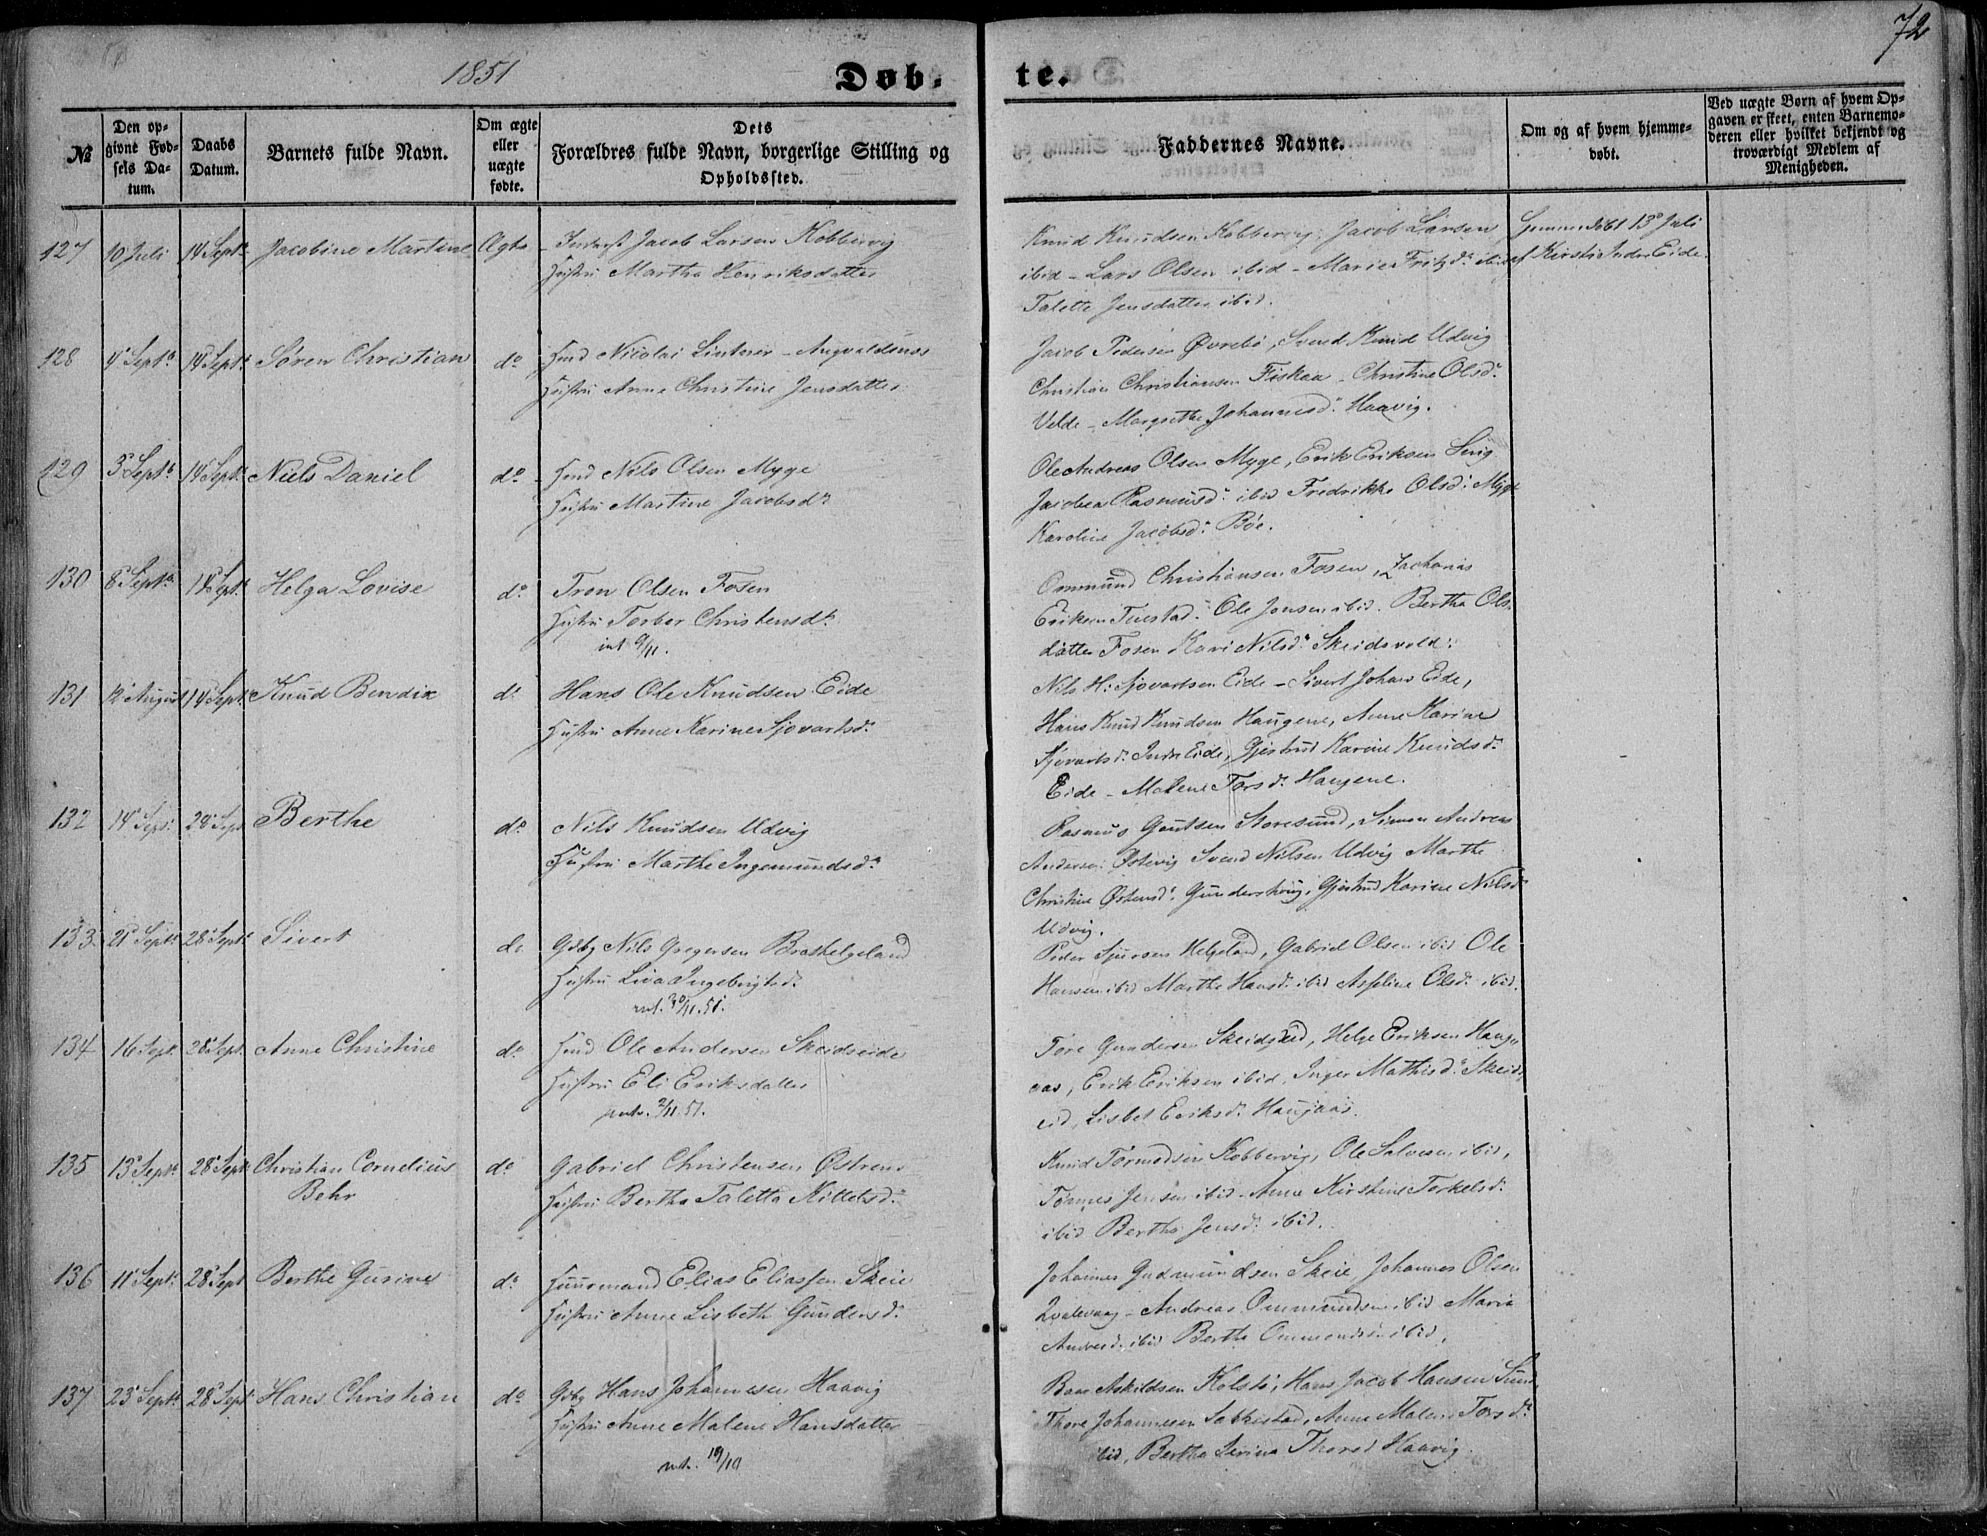 72
1851
Døb- te.
№
Den op-
givne Fød-
sels Da-
tum.
Daabs
Datum.
Barnets fulde Navn.
Om ægte
eller
uægte
fødte.
Dets
Forældres fulde Navn, borgerlige Stilling og
Opholdssted.
Faddernes Navne.
Om og af hvem hjemme-
døbt.
Ved uægte Børn af hvem Op-
gaven er skeet, enten Barnemo-
deren eller hvilket bekjendt og
troværdigt Medlem af
Menigheden.
127 10 Juli 14 Sept. Jacobine Martine Ægte Jacob Larsen Kobbervig
Hustru Martha Henriksdatter
Knud Knudsen Kobbervig, Jacob Larsen
ibid - Lars Olsen ibid - Marie Fritzd.
Talette Jensdatter ibid.
Hjemmedøbt 13 Juli
af Kirsti Indre Eide.
128 4 Sept. 14 Sept. Søren Christian do Nicolai - Augvaldsnes
Hustru Anne Christine Jensdatter
Jacob Pedersen Øvrebø, Svend Knud Udvig
Christian Christiansen Fiskaa - Christine Olsd.
Velde - Margrethe Johannesd. Haavig.
129 3 Sept. 14 Sept. Niels Daniel do Nils Olsen Myge
Hustru Martine Jacobsd.
Ole Andreas Olsen Myge, Erik Eriksen
Jacobea Rasmusd. ibid Fredrikke Olsd. Myge
Karoline Jacobsd. Bøe.
130 8 Sept. 14 Sept. Helga Lovise do Tron Olsen Fosen
Hustru Torbor Christensd.
int 9/11.
Ommund Christiansen Fosen, Zacharias
Eriksen Ole Jonsen ibid. Bertha Ols-
datter Fosen Kari Nilsd. Skeidsvold.
131 12 August 14 Sept. Knud Bendix do Hans Ole Knudsen Eide
Hustru Anne Karine Sjovartsd.
Nils H. Sjovartsen Eide - Sivert Johan Eide,
Hans Knud Knudsen Haugene, Anne Karine
Sjovartsd. Indre Eide, Gjertrud Karine Knudsd.
Eide - Malene Torsd. Haugene.
132 14 Sept. 28 Sept Berthe do Nils Knudsen Udvig
Hustru Marthe Ingemundsd.
Rasmus Gautsen Storesund, Simon Andreas
Andersen Østevig Svend Nilsen Udvig Marthe
Christine Østensd. Gjertrud Karine Nilsd.
Udvig.
133 21 Sept. 28 Sept. Sivert do Gdbr Nils Gregersen Brathelgeland
Hustru Ingebrigtsd.
int. 30/11.51.
Peder Sjursen Helgeland, Gabriel Olsen ibid Ole
Hansen ibid Marthe Hansd. ibid Aspline Olsd. ibid.
134 16 Sept. 28 Sept. Anne Christine do Ole Andersen Skeidseide
Hustru Eli Eriksdatter
2/11.51.
Tore Gundersen Helge Eriksen Haug-
aas, Erik Eriksen ibid, Inger Mathisd. Skeids-
eid, Lisbet Eriksd. Haugaas.
135 13 Sept. 28 Sept. Christian Cornelius do Gabriel Christensen Østrem
Behr Hustru Bertha Taletta Kittelsd.
Knud Tormodsen Kobbervig, Ole Salvesen ibid,
Tønnes Jensen ibid - Anne Kirstine Torkelsd.
ibid Bertha Jensd. ibid.
136 11 Sept. 28 Sept Berthe Gurine do Huusmand Elias Eliassen Skeie
Hustru Anne Lisbeth Gundersd.
Johannes Gudmundsen Skeie, Johannes Olsen
Qvalevaag - Andreas Ommundsen ibid Maria
ibid Berthe ibid.
137 23 Sept. 28 Sept. Hans Christian do Gdbr Hans Johannesen Haavig
Hustru Anne Malene Hansdatter
int. 19/10
Askildsen Kolstø, Hans Jacob Hansen Sund,
Thore Johannesen Anne Malene Torsd.
ibid, Bertha Serina Thorsd Haavig.